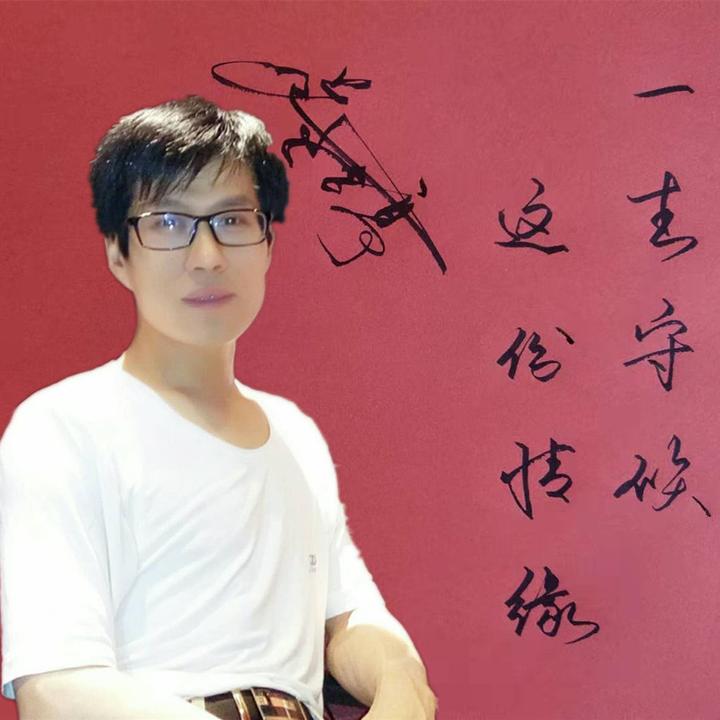 一直守候
这份情缘